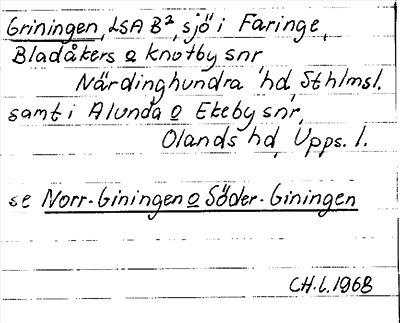 Griningen, LSA B², sjö i Faringe,
Bladåkers o knutby snr
Närdinghundra hd, Sthlmsl.
samt i Alunda o Ekeby snr,
Olands hd, Upps. l.
se Norr-Giningen o Söder-Giningen
CH.L.1968